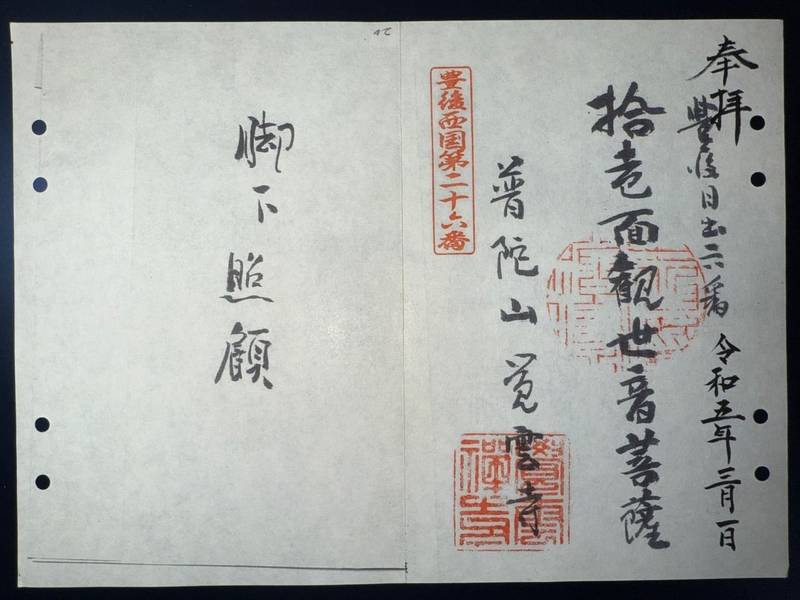 奉拝
豊後日出六番 令和五年三月一日
拾壱面観世音菩薩
普陀山 覚雲寺
豊後西国第二十六番
覚雲禅寺
脚下照顧